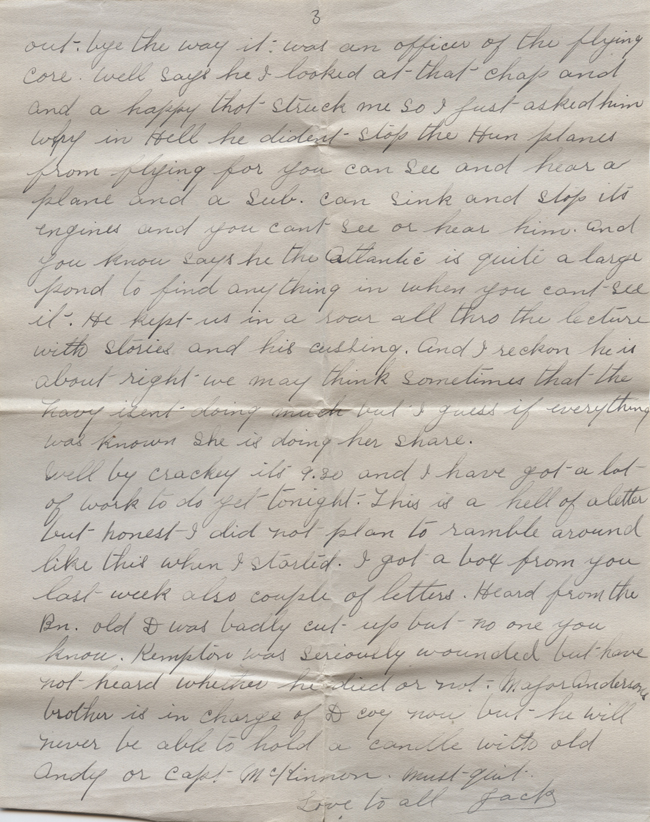 3
out. bye the way it: was an officer of the flying
core. Well says he I looked at that chap and
and a happy thot struck me so I just asked him
why in Hell he dident stop the Hun planes
from flying for you can see and hear a
plane and a sub. can sink and stop its
engines and you cant see or hear him. And
you know says he the Atlantic is quite a large
pond to find anything in when you cant see
it. He kept us in a roar all thro the lecture
with stories and his cussing. And I reckon he is
about right we may think sometimes that the
navy isent doing much but I guess if everything
was known she is doing her share.
Well by crackey its 9.30 and I have got a lot
of work to do yet tonight. This is a hell of a letter
but honest I did not plan to ramble around
like this when I started. I got a box from you
last week also couple of letters. Heard from the
Bn. old D was badly cut up but no one you
know. Kempton was seriously wounded but have
not heard whether he died or not. Major Andersons
brother is in charge of D coy now, but he will
never be able to hold a candle with old
Andy or Capt. McKinnon. Must quit.
Love to all Jack